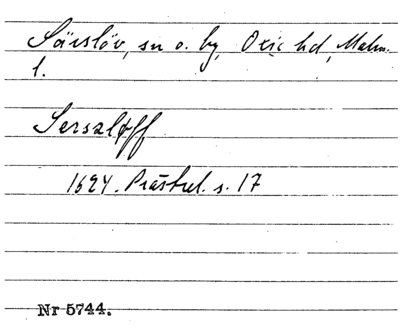 Särslöv, sn o. by, Oxie hd, Malm.
l.
Serszløff
1624. Prästrel. s. 17
Nr 5744.